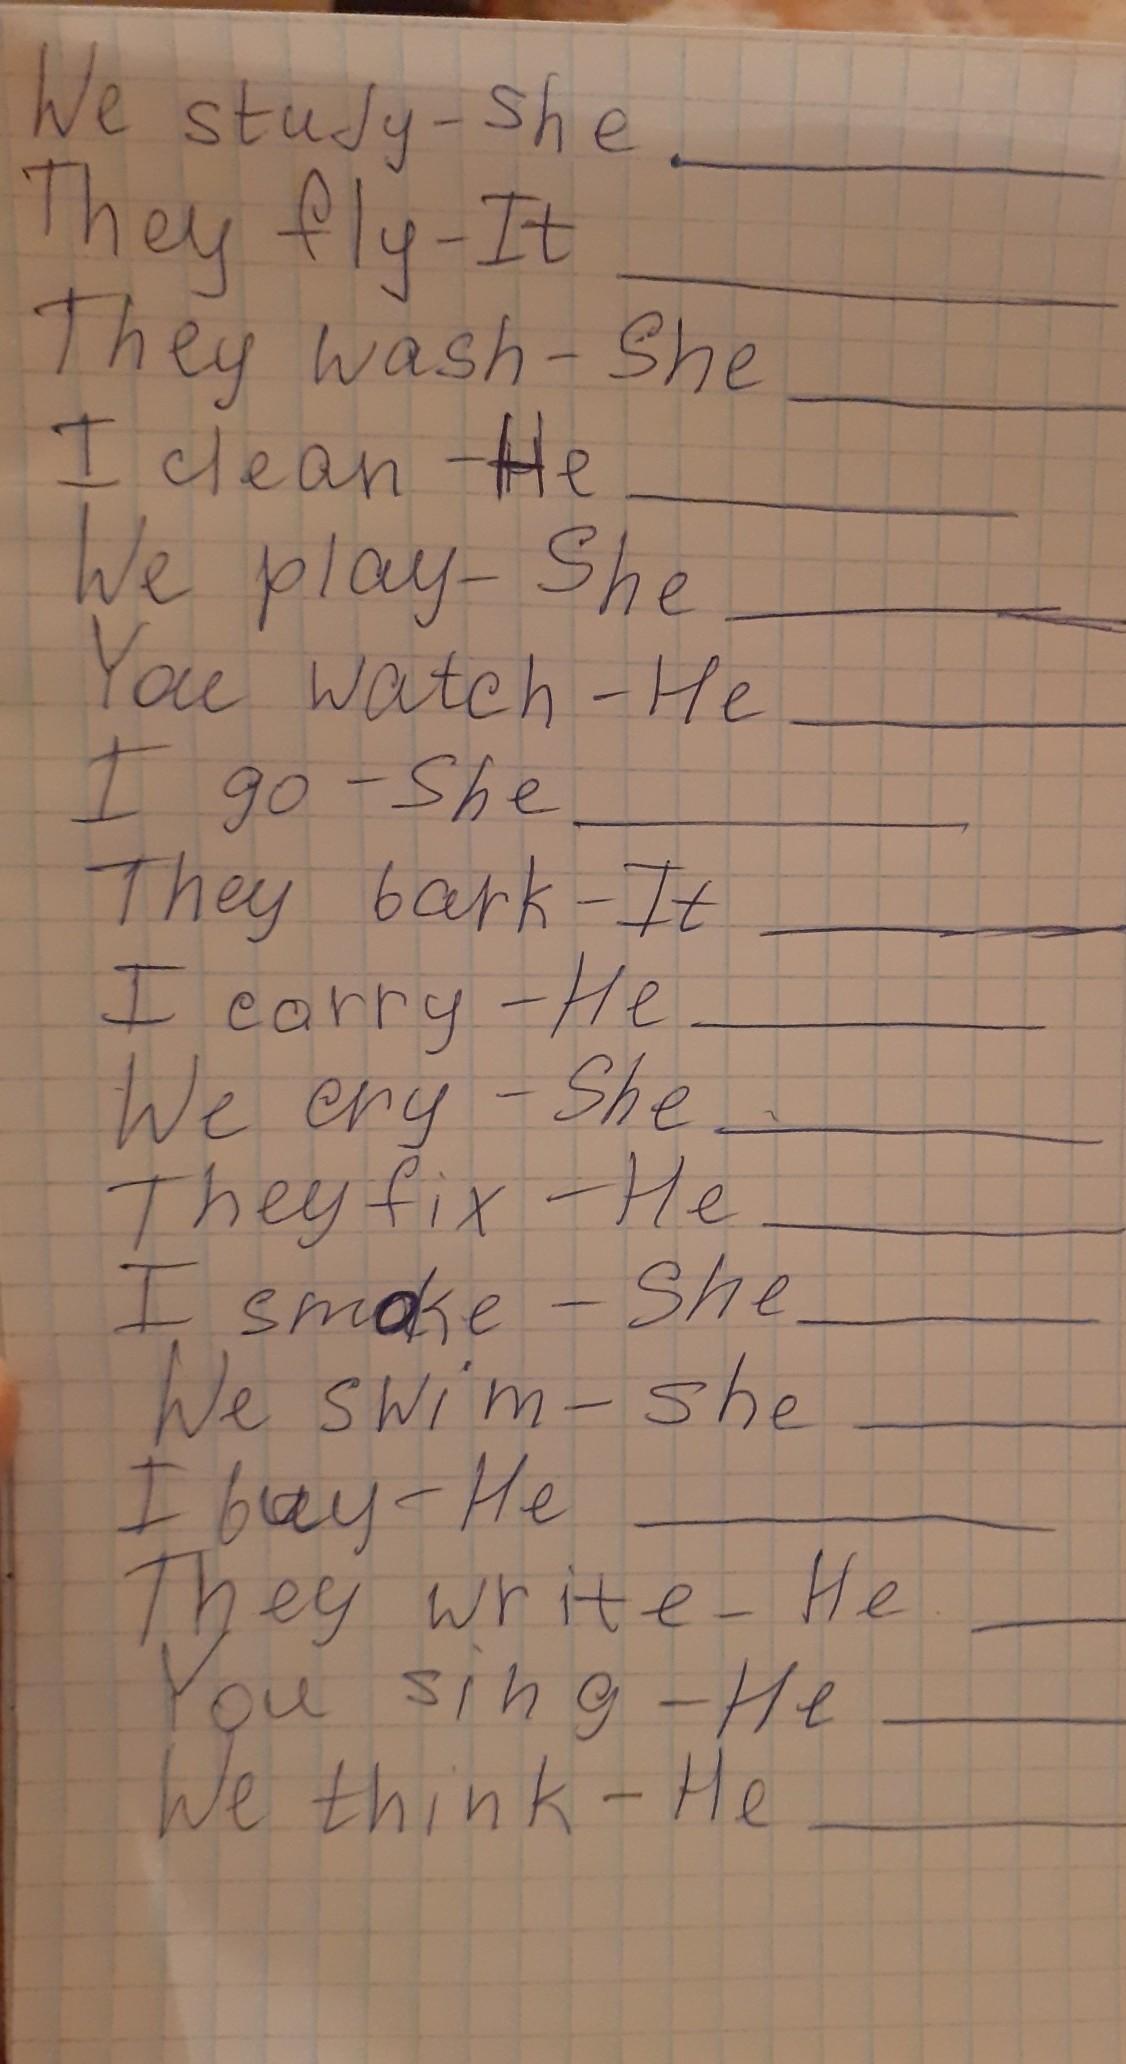 We study-She
They fly-It
They wash-She
I clean-He
We play-She
You watch-He
I go-She
They bark-It
I carry-He
We cry-She
They fix-He
I smoke-She
We swim-she
I buy-He
They write-He
You sing-He
We think-He